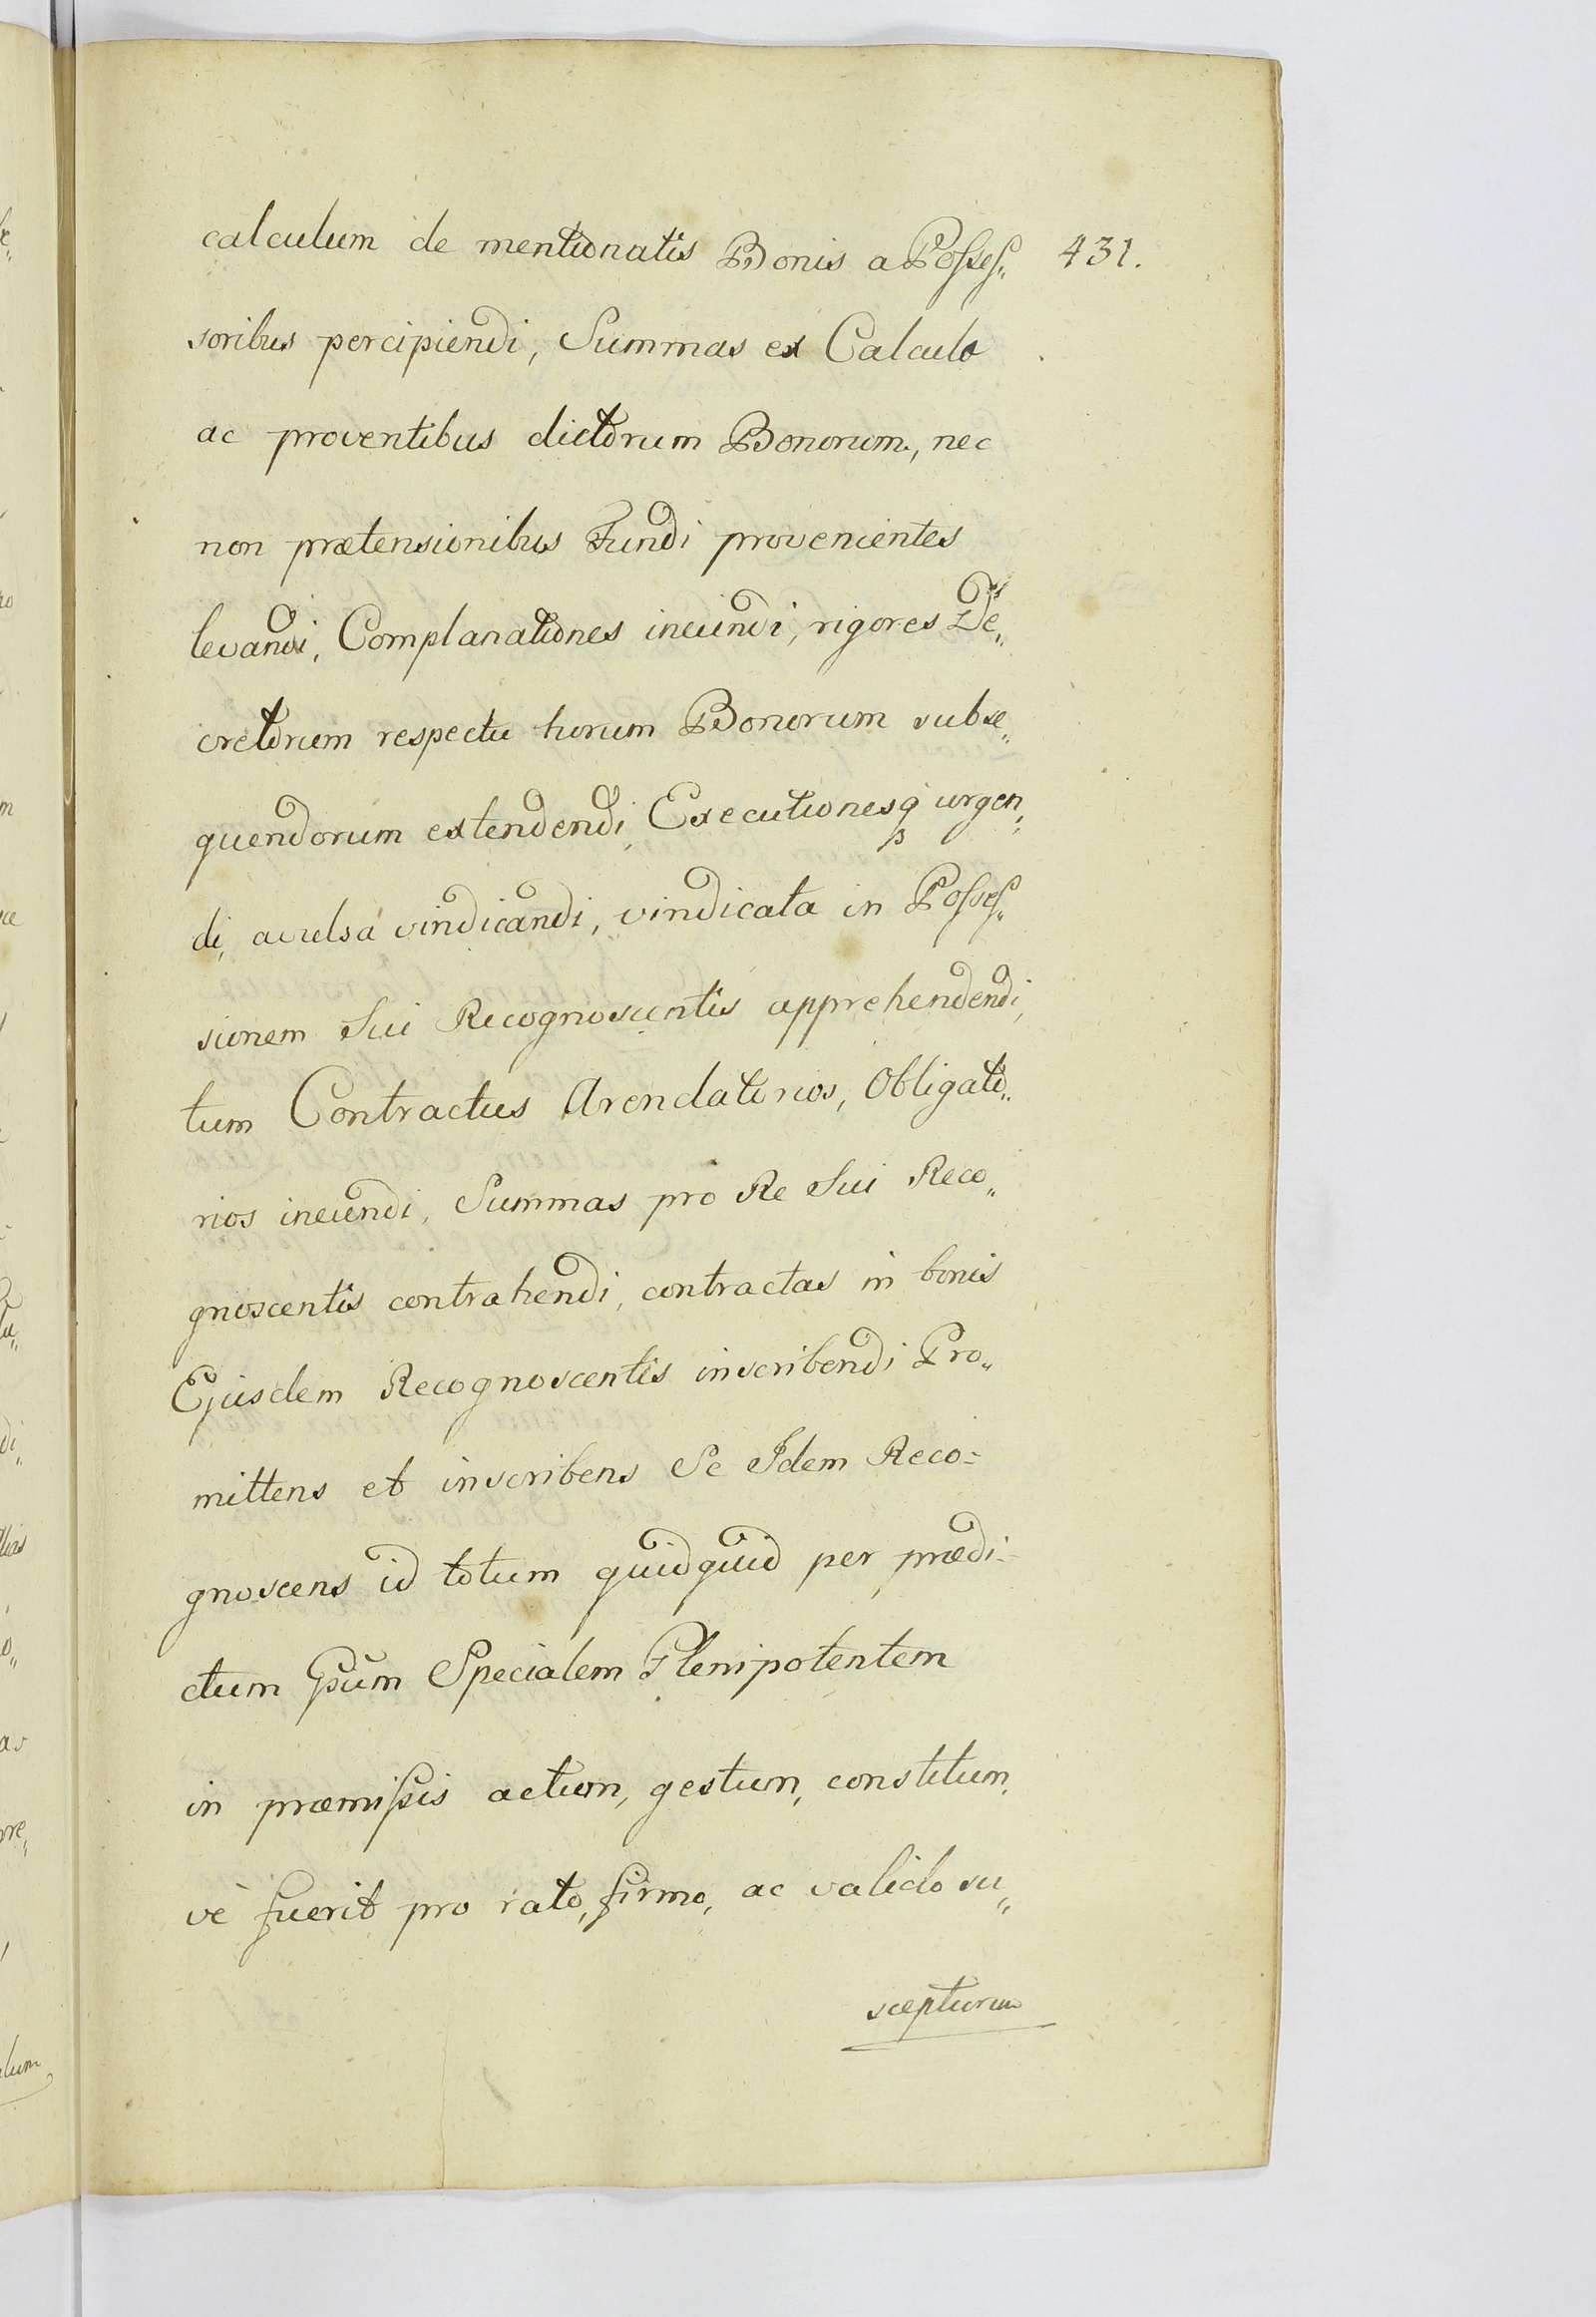 calculum de mentionatis Bonis a Posses„ 431.
soribus percipiendi, Summas ex Calculo
ac proventibus dictorum Bonorum, nec
non prætensionibus Fundi provenientes
levandi, Complanationes ineundi, rigores De„
cretorum respectu horum Bonorum subse„
quendorum extendendi, Executionesq urgen„
di, avulsa vindicandi, vindicata in Posses„
sionem Sui Recognoscentis apprehendendi,
tum Contractus Arendatorios, Obligato„
rios ineundi, Summas pro Re Sui Reco„
gnoscentis contrahendi, contractas in bonis
Ejusdem Recognoscentis inscribendi Pro„
mittens et inscribens Se Idem Reco=
gnoscens id totum quidquid per prædi-
ctum Gsum Specialem Plenipotentem
in præmissis actum, gestum, constitum„
vè fuerit pro rato, firmo, ac valido su„
scepturum